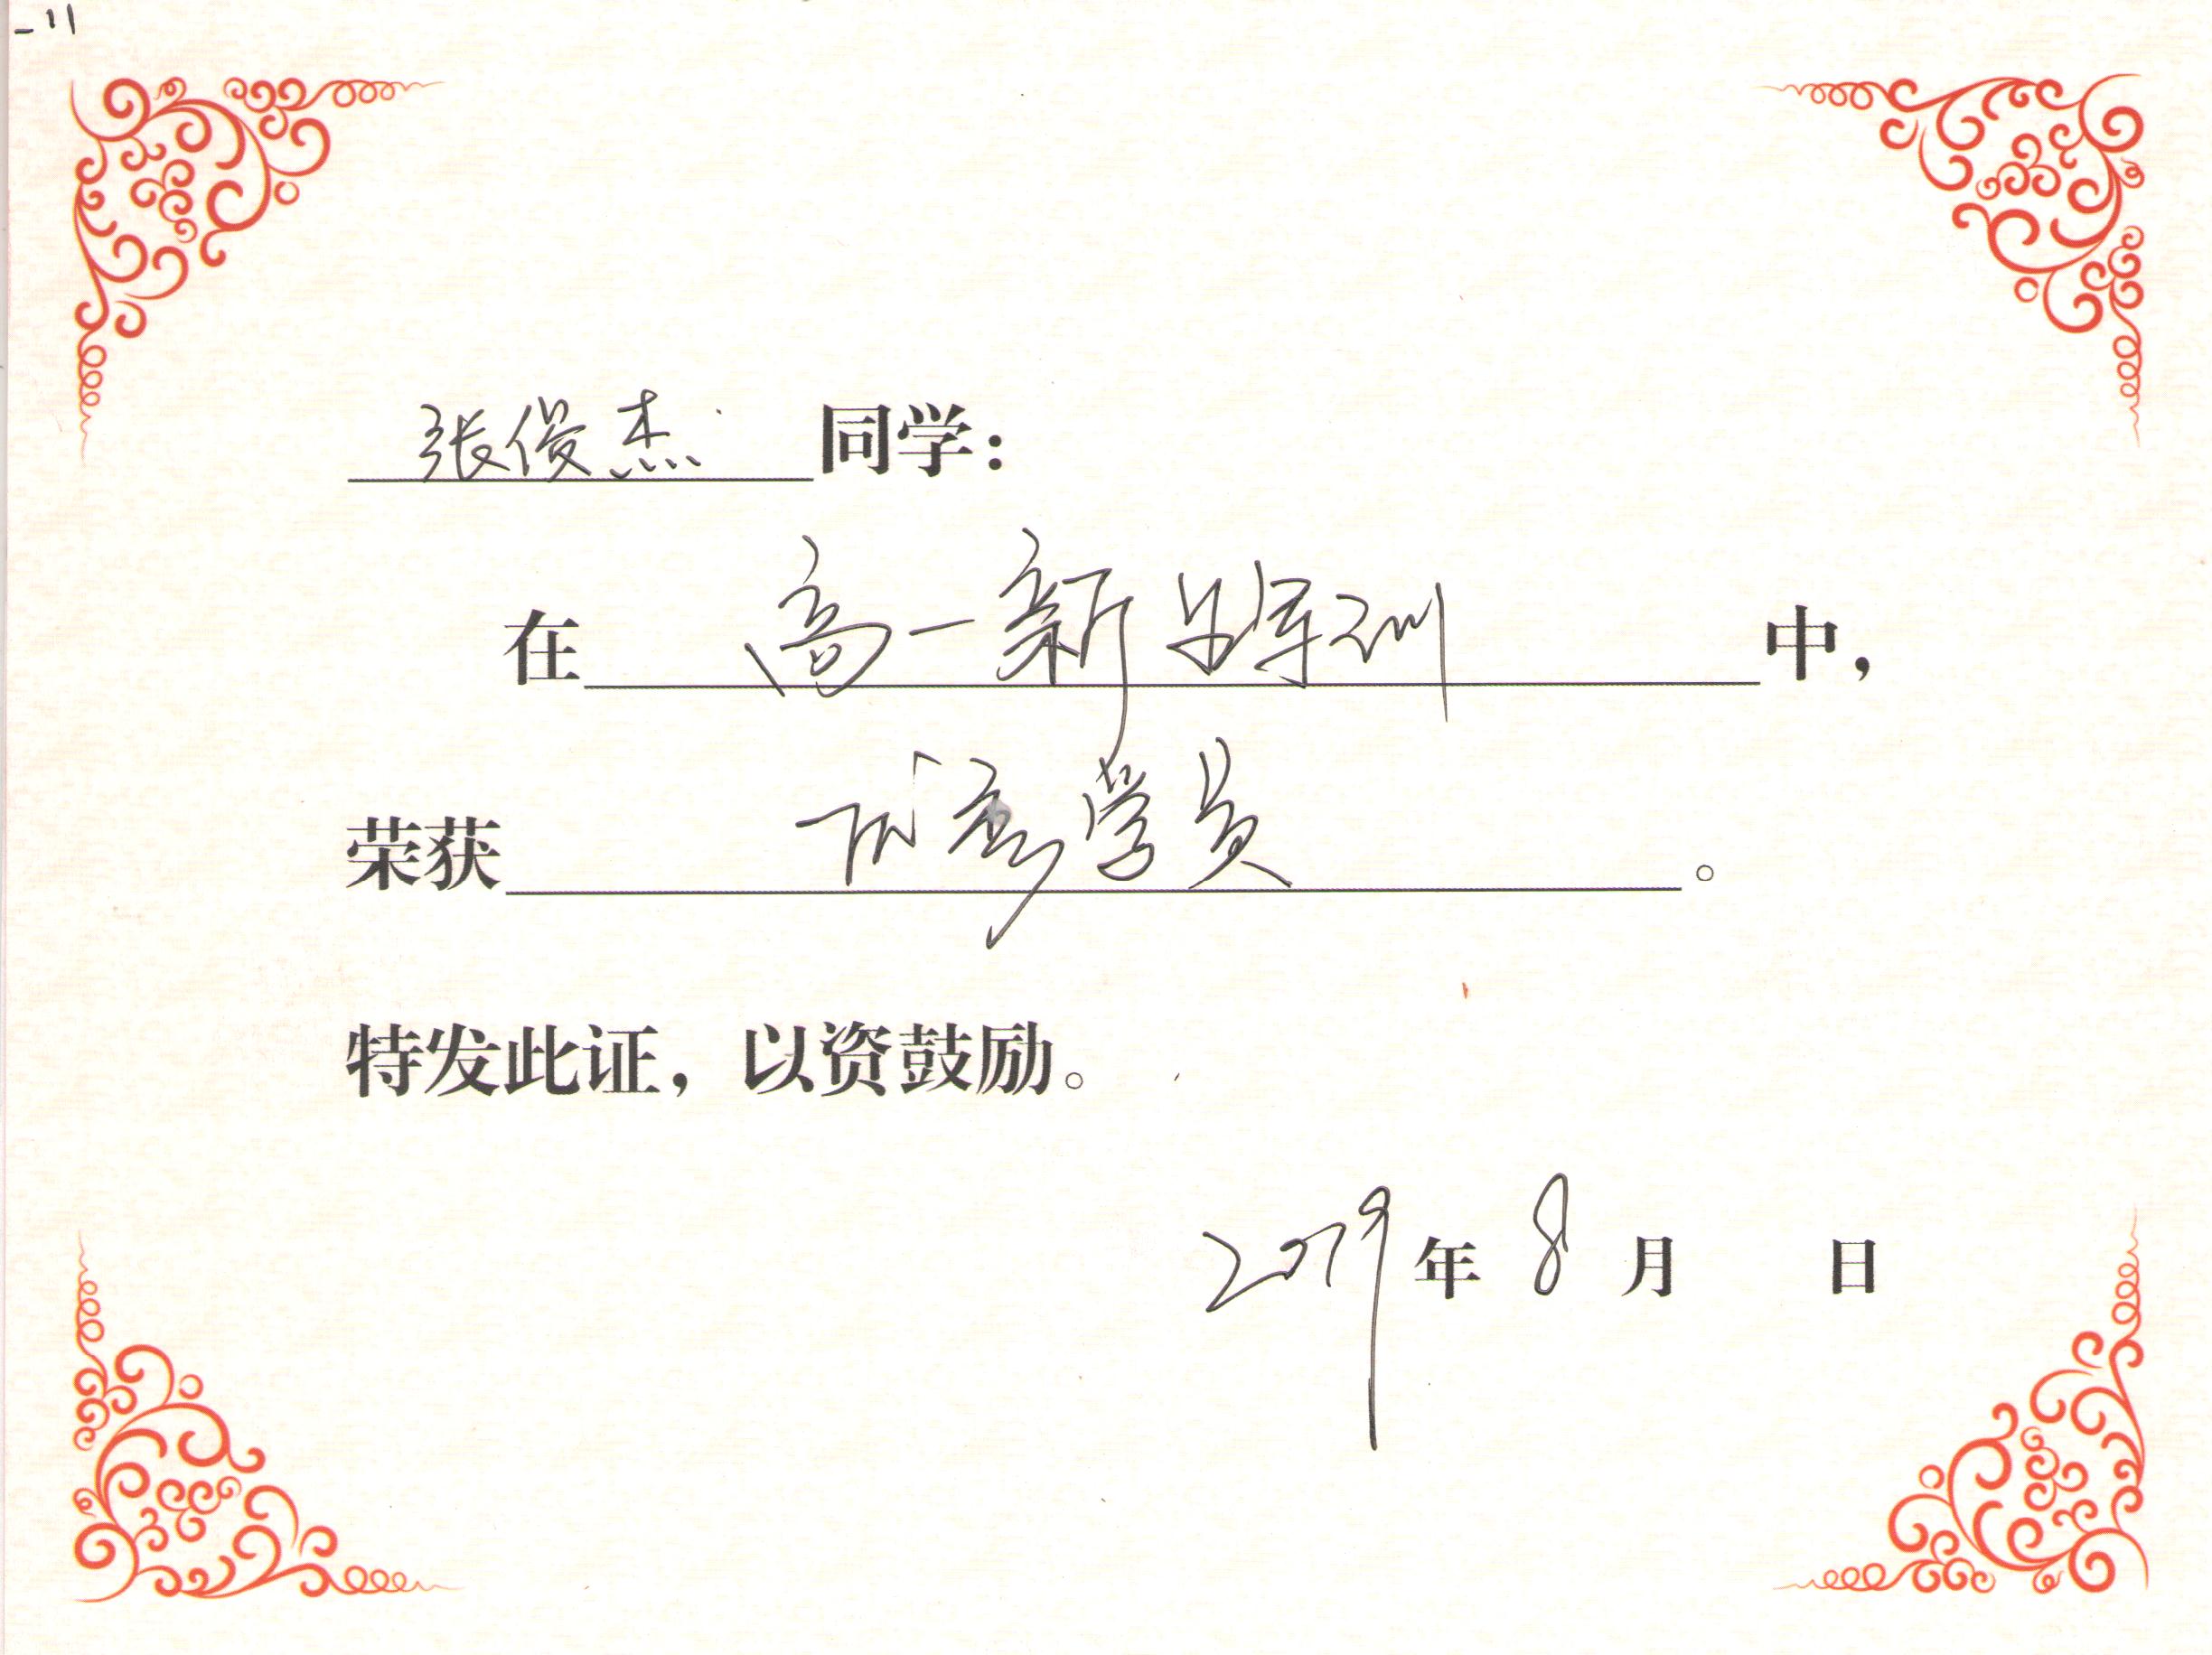 -11
张俊杰 同学：
在 高一新生军训 中，
荣获 优秀学员 。
特发此证，以资鼓励。
2019 年 8 月 日